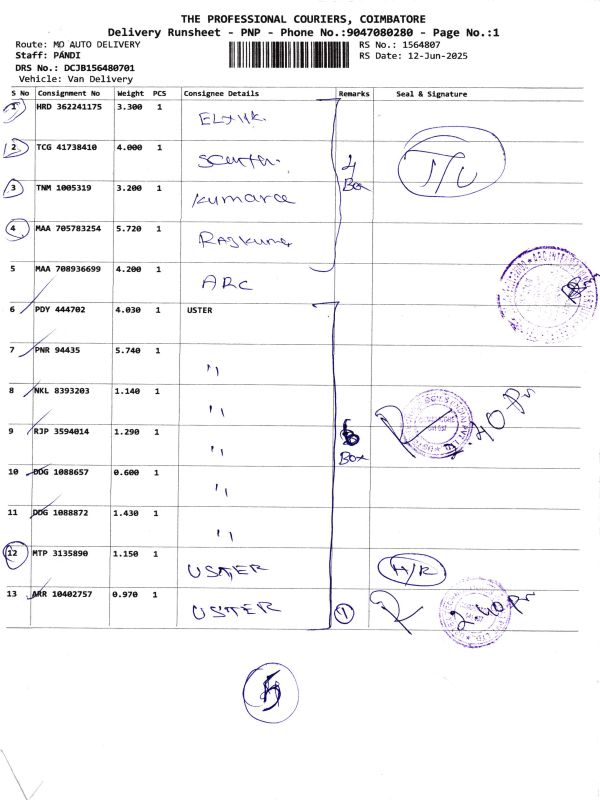 THE PROFESSIONAL COURIERS, COIMBATORE
Delivery Runsheet - PNP - Phone No.:9047080280 - Page No.:1
Route: MO AUTO DELIVERY
RS No.: 1564807
Staff: PANDI
RS Date: 12-Jun-2025
DRS No.: DCJB156480701
Vehicle: Van Delivery
S No Consignment No Weight PCS Consignee Details Remarks Seal & Signature
1 HRD 362241175 3.300 1
2 TCG 41738410 4.000 1
3 TNM 1005319 3.200 1 Kumarce
4 Box
4 MAA 705783254 5.720 1 Rajkumar
5 MAA 708936699 4.200 1 ARC
6 PDY 444702 4.030 1 USTER
7 PNR 94435 5.740 1 "
8 NKL 8393203 1.140 1 "
9 RJP 3594014 1.290 1 "
6 Box
10 DDG 1088657 0.600 1 "
11 DDG 1088872 1.430 1 "
12 MTP 3135890 1.150 1 USTER
13 ARR 10402757 0.970 1 USTER 1 2.40 Pm